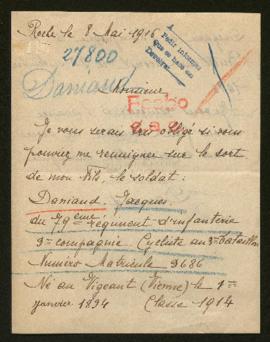 Roche le 8 Mai 1916
Pedir informes
27800
Daniaud
Monsieur
Je vous serais très obligé si vous
pouviez me renseigner sur le sort
de mon fils, le soldat:
Daniaud Jacques
du 79ème régiment d'infanterie
9e compagnie. Cycliste au 3e bataillon
Numéro Matricule 9686
Né au Vigeant (Vienne) le 1er
janvier 1894 Classe 1914